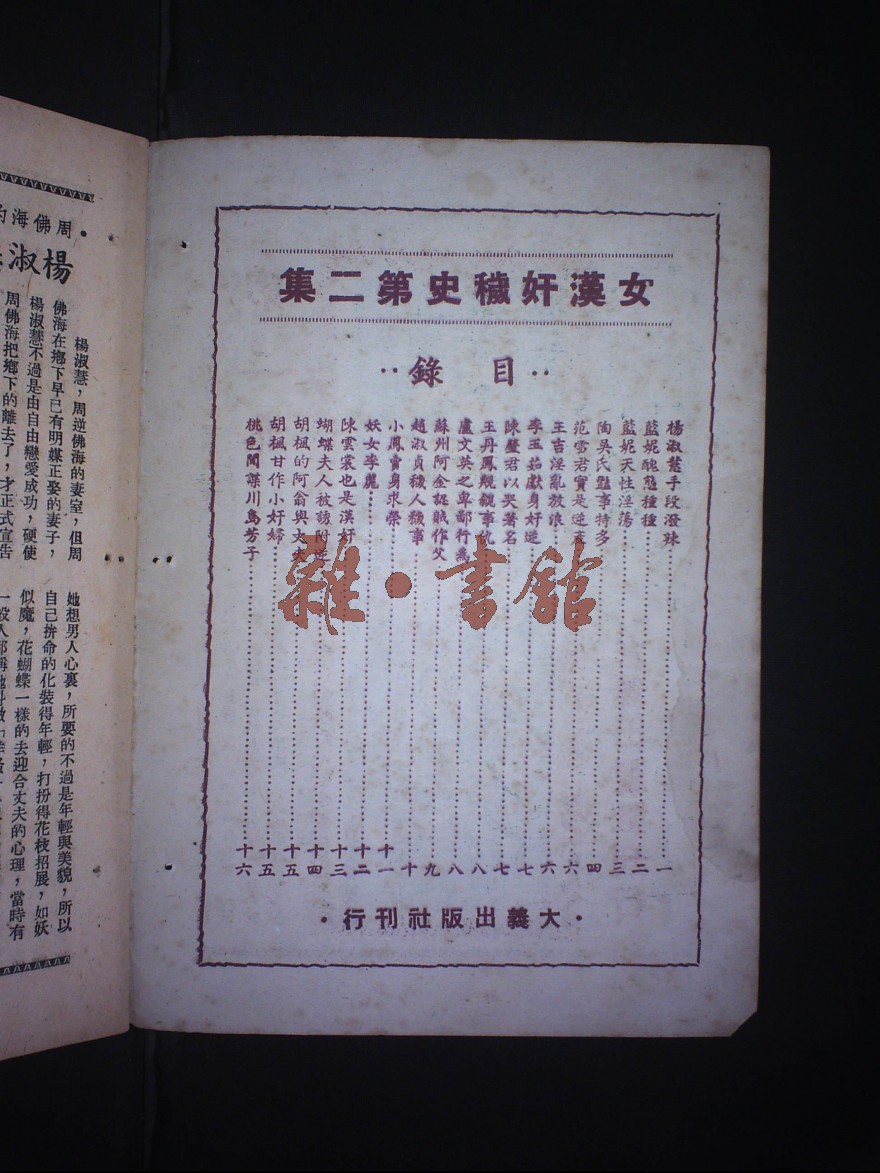 女漢奸穢史第二集
··目錄··
楊淑慧手段潑辣……一
藍妮醜態種種……二
藍妮天性淫蕩……三
陶吳氏豔事特多……四
范雪君實是逆產……六
王吉淫亂放浪……六
李玉茹獻身奸逆……七
陳璧君以哭著名……七
王丹鳳事仇……八
盧文英之卑鄙行為……八
蘇州阿金認賊作父……九
趙淑貞穢人穢事……十
小鳳賣身求榮……十一
妖女李麗……十二
陳雲裳也是漢奸……十三
蝴蝶夫人被誘附逆……十四
胡楓的阿翁與丈夫……十五
胡楓甘作小奸婦……十五
桃色間諜川島芳子……十六
·大義出版社刊行·
雜·書館
·周佛海的
楊淑
楊淑慧,周逆佛海的妻室,但周
佛海在鄉下早已有明媒正娶的妻子,
楊淑慧不過是由自由戀愛成功,硬使
周佛海把鄉下的離去了,才正式宣告
她想男人心裏,所要的不過是年輕與美貌,所以
自己拚命的化裝得年輕,打扮得花枝招展,如妖
似魔,花蝴蝶一樣的去迎合丈夫的心理,當時有
一般人都稱她